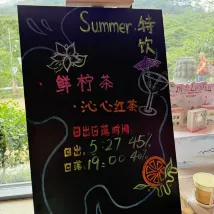 Summer 特饮
·鲜柠茶
·沁心红茶
日出日落时间
日出: 5:27 45/
日落: 19:00